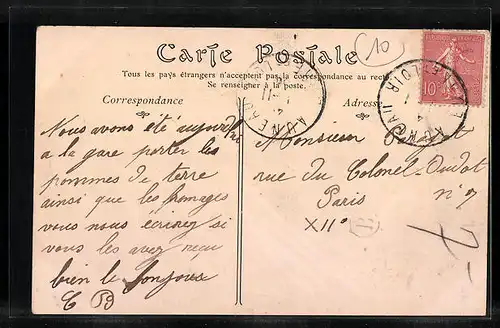 (10)
Carte Postale
Tous les pays étrangers n'acceptent pas la correspondance au recto
Se renseigner à la poste.
Correspondance
Adresse
10
AUNEAU
EURE ET LOIR
Nous avons été aujourd'hui
a la gare porter les
pommes de terre
ainsi que les fromages
vous nous écrirez si
vous les avez reçu
bien le bonjour
Monsieur
rue du Colonel-Oudot
n° 7
Paris
XIIe